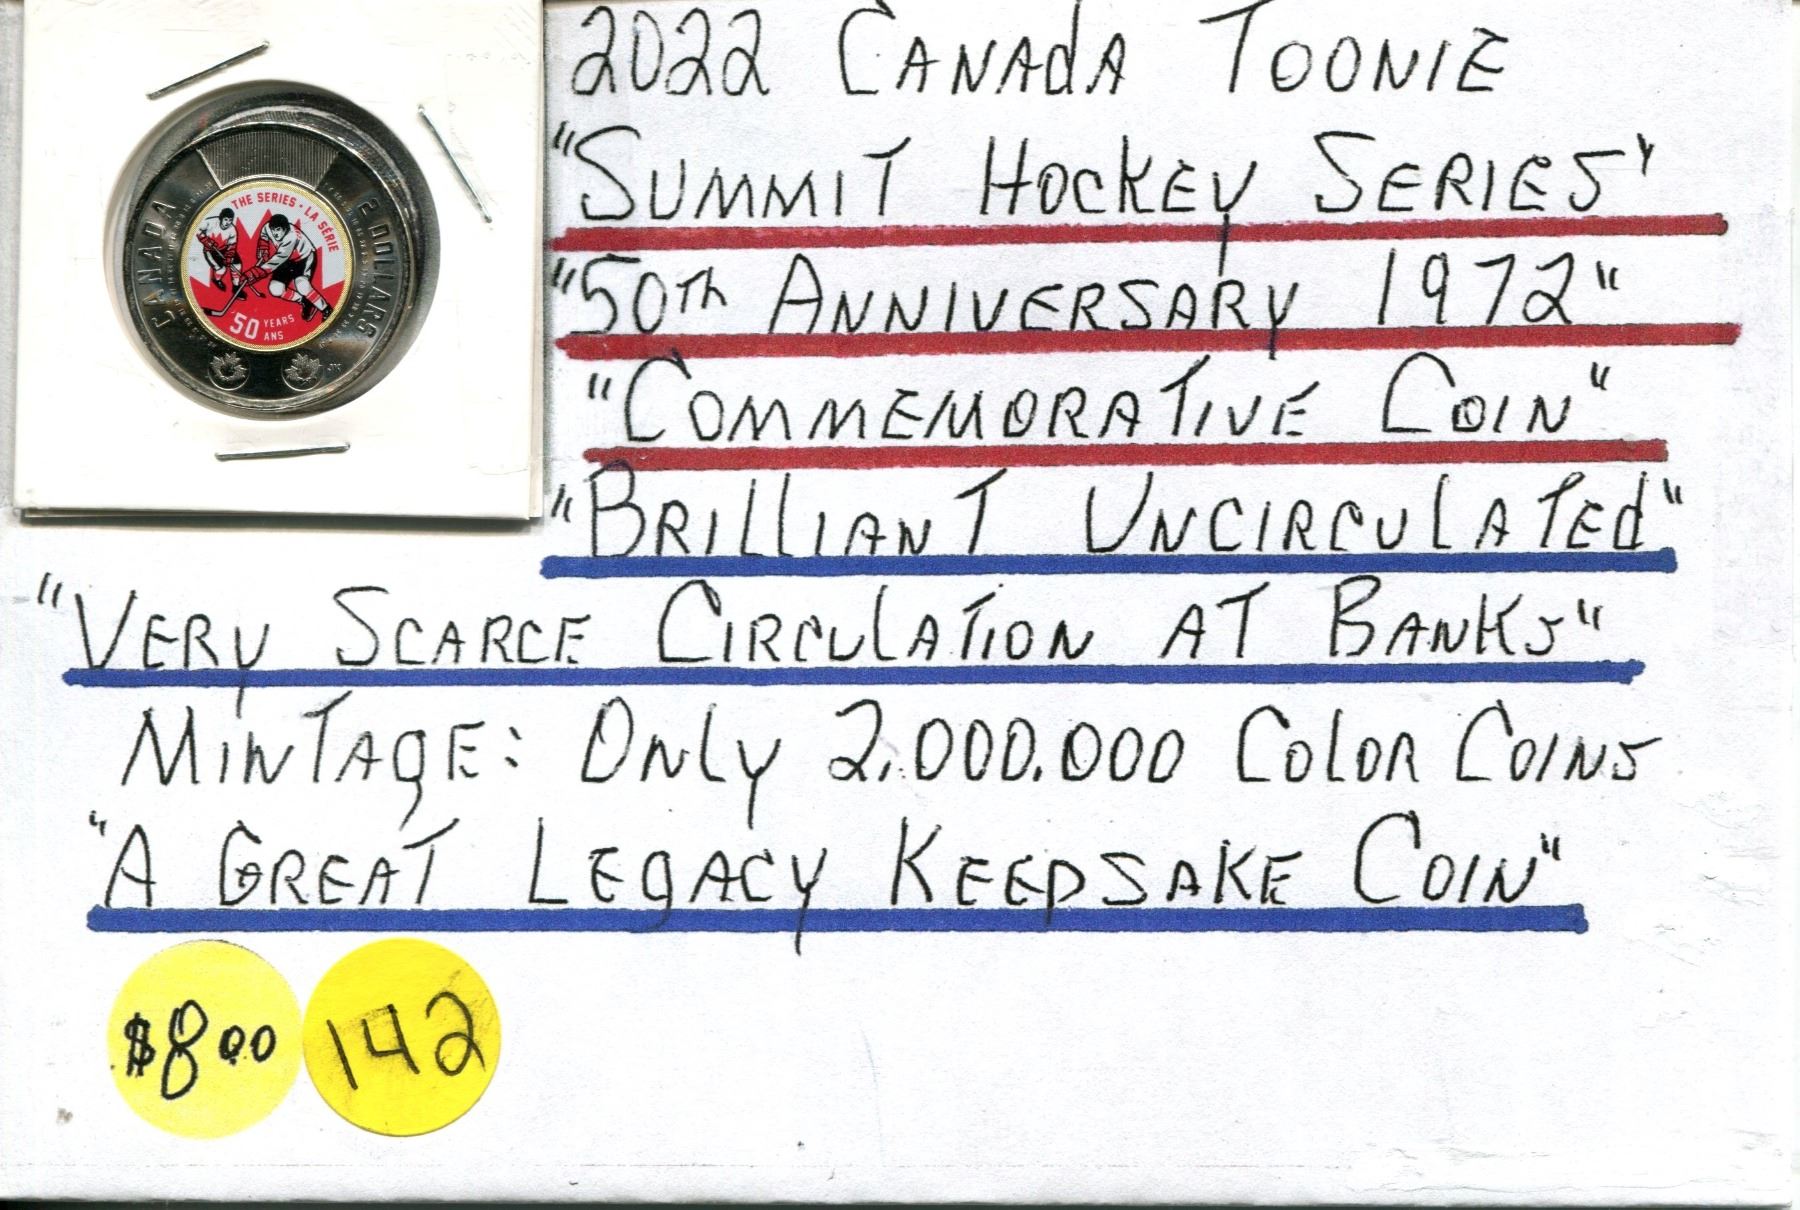 2022 CANAdA TOONIE
"SUMMIT HOCKEY SERIES"
"50th ANNIVERSARY 1972"
"COMMEMORATIVE COIN"
"BRILLIANT UNCIRCULATEd"
"VERY SCARCE CIRCULATION AT BANKS"
MINTAGE: ONLY 2,000.000 COLOR COINS
"A GREAT LEGACY KEEPSAKE COIN"
$8.00
142
CANADA
2 DOLLARS
THE SERIES • LA SÉRIE
50 YEARS
ANS